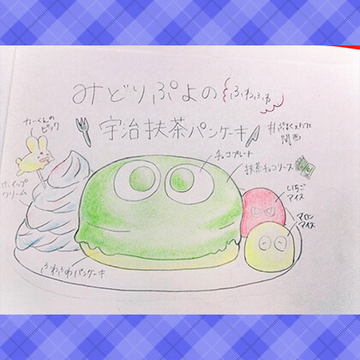 みどりぷよの
ふわふわ
宇治抹茶パンケーキ
カーくんの
ピック
チョコプレート
抹茶チョコソース
ホイップ
クリーム
いちご
アイス
マロン
アイス
ふわふわパンケーキ
関西